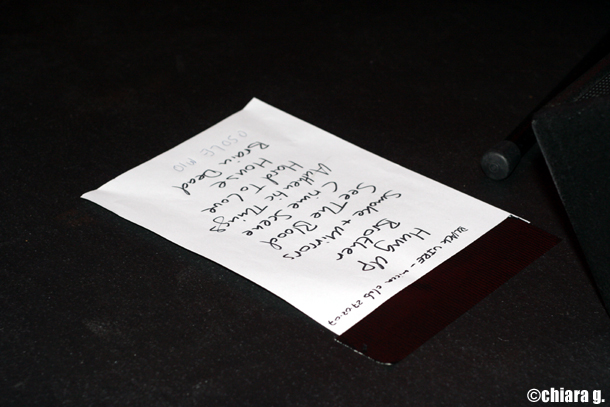 BLACK WIRE - club 27.02.07
Hung Up
Brother
Smoke + Mirrors
See The Blood
Crime Scene
Authentic Things
Hard To Love
House
Brain Dead
O SOLE MIO
©chiara g.